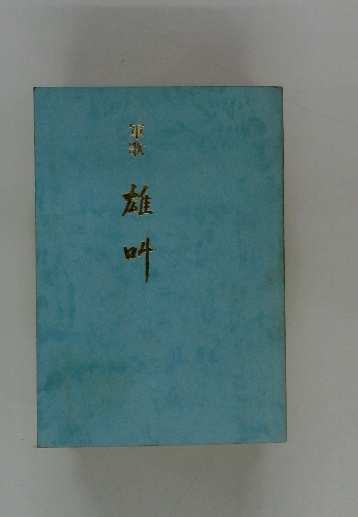 軍歌
雄叫